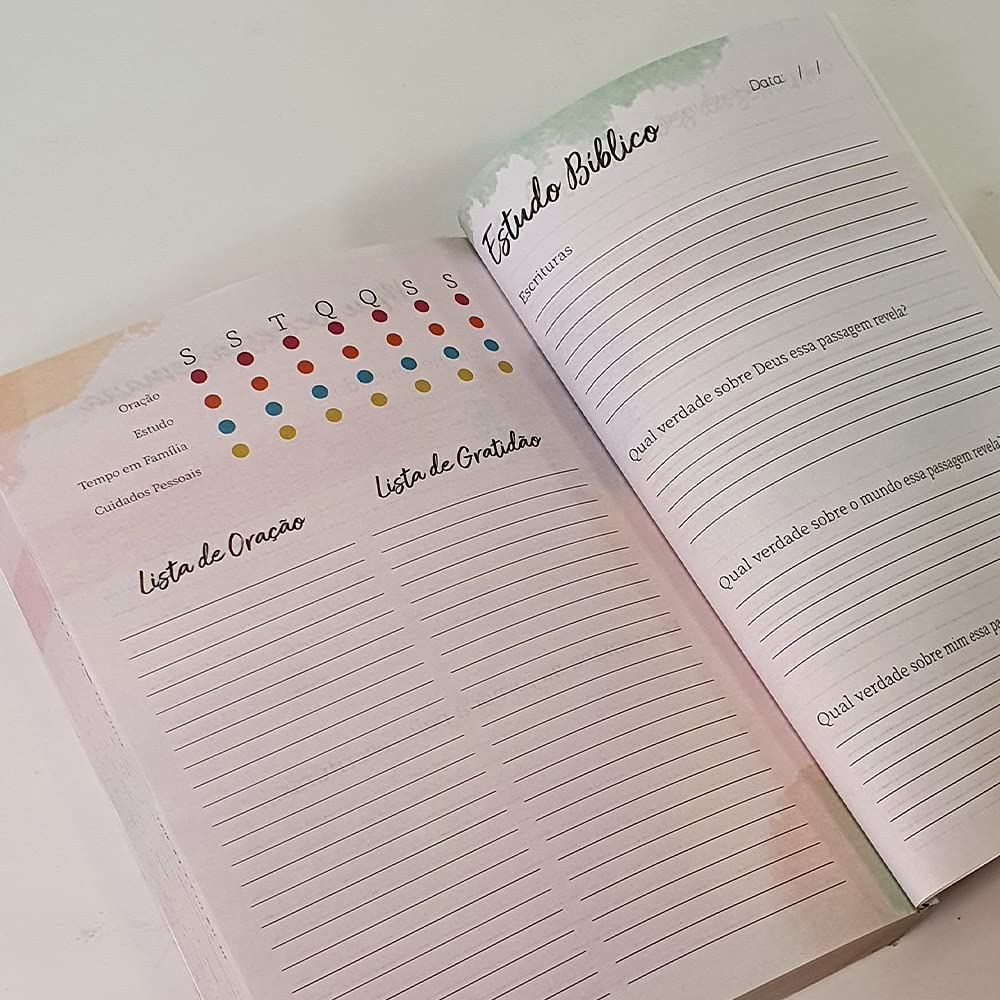 S S T Q Q S S
Oração
Estudo
Tempo em Família
Cuidados Pessoais
Lista de Oração
Lista de Gratidão
Data: / /
Estudo Bíblico
Escrituras
Qual verdade sobre Deus essa passagem revela?
Qual verdade sobre o mundo essa passagem revela
Qual verdade sobre mim essa pa